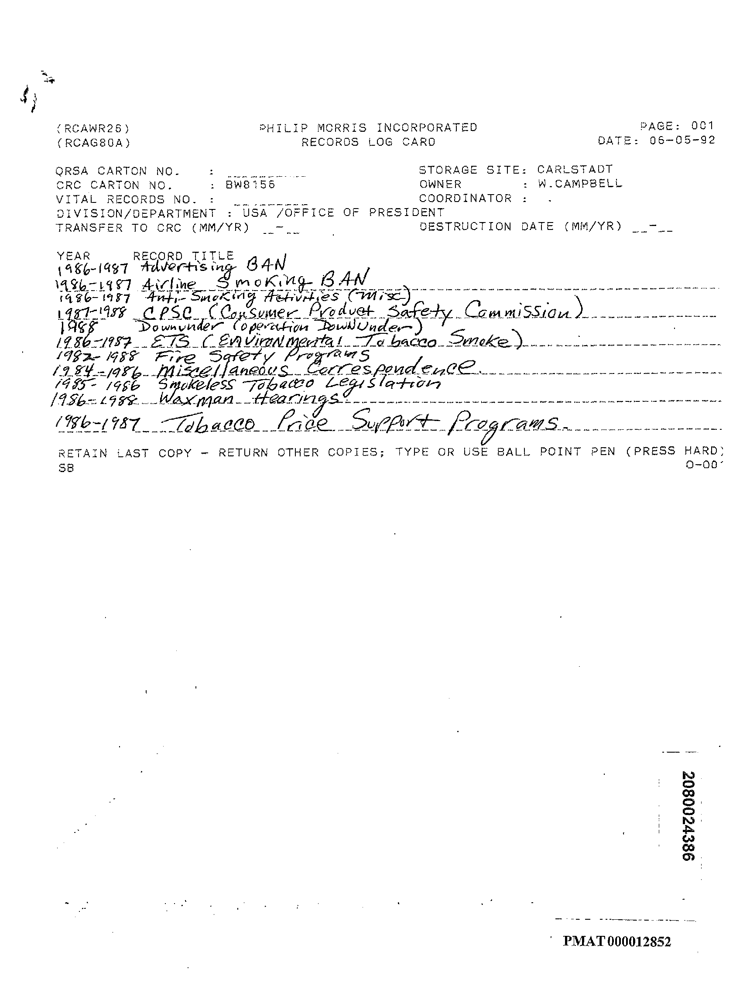 (RCAWR26) PHILIP MORRIS INCORPORATED PAGE: 001
(RCAG80A) RECORDS LOG CARD DATE: 06-05-92
QRSA CARTON NO. : STORAGE SITE: CARLSTADT
CRC CARTON NO. : BW8156 OWNER : W.CAMPBELL
VITAL RECORDS NO. : COORDINATOR : .
DIVISION/DEPARTMENT : USA /OFFICE OF PRESIDENT
TRANSFER TO CRC (MM/YR) __-__ DESTRUCTION DATE (MM/YR) __-__
YEAR RECORD TITLE
1986-1987 Advertising BAN
1986-1987 Airline Smoking BAN
1986-1987 Anti-Smoking Activities (Misc)
1987-1988 CPSC (Consumer Product Safety Commission)
1988 Downunder (operation DownUnder)
1986-1987 ETS (ENVIRONMental Tobacco Smoke)
1982-1988 Fire Safety Programs
1984-1986 Miscellaneous Correspondence.
1985-1986 Smokeless Tobacco Legislation
1986-1988 Waxman Hearings
1986-1987 Tobacco Price Support Programs
RETAIN LAST COPY - RETURN OTHER COPIES; TYPE OR USE BALL POINT PEN (PRESS HARD)
SB O-001
2080024386
PMAT000012852